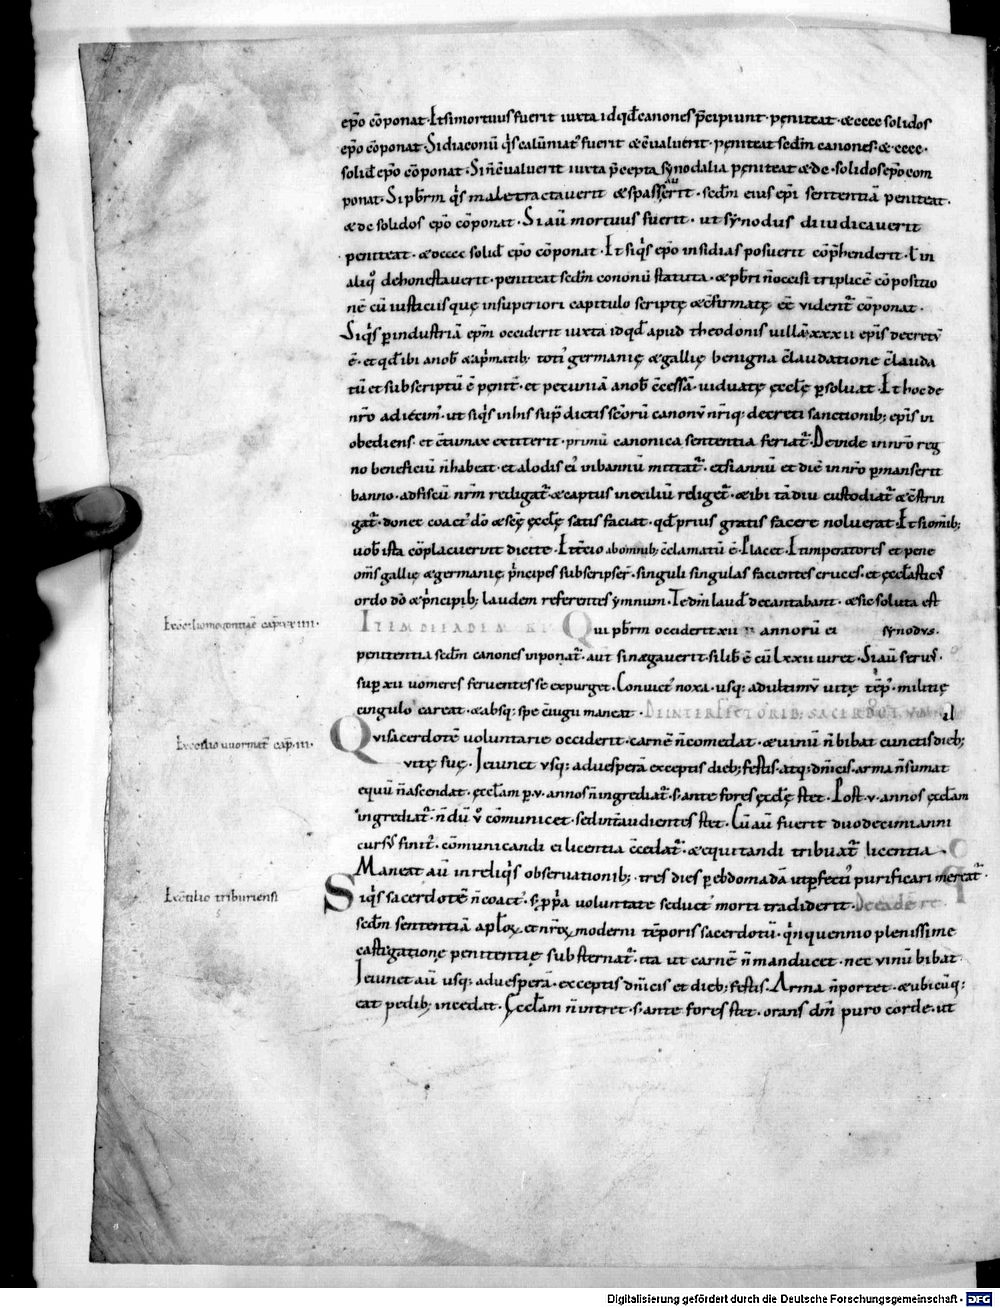 ep̄o cōponat. Et si mortuus fuerit iuxta id qd̄ canones p̄cipiunt. peniteat. & cccc solidos
ep̄o cōponat. Si diaconū q̇s calūniat᾽ fuerit & c̄ualuerit. peniteat scd̄m canones. & cccc.
solid̄ ep̄o cōponat. Si n̄ c̄ualuerit iuxta p̄cepta synodalia peniteat & dc. solidos ep̄o com
ponat. Si pb̄rm q̇s male tractauerit & spasserit. scd̄m eius ep̄i sententiā peniteat.
& dc solidos ep̄o cōponat. Si aū mortuus fuerit. ut synodus diiudicauerit
peniteat. & dcccc solid̄ ep̄o cōponat. Et si q̇s ep̄o insidias posuerit cōp̄henderit. ł in
aliq̊ dehonestauerit. peniteat scd̄m cononū statuta. & pb̄ri n̄ occisi triplicē cōpositio
nē cū iusticiis quę in superiori capitulo scriptę & c̄firmatę eē vident᾽ cōponat.
Siq̇s p industriā ep̄m occiderit iuxta id qd̄ apud theodonis uillā xxxii ep̄is decretū
ē. et qd̄ ibi a nob̄ & a p̄matib; toti᾽ germanię & gallię benigna c̄laudatione c̄lauda
tū et subscriptū ē penit̄. et pecuniā a nob̄ c̄cessā. uiduatę ęccl̄ę p soluat. Et hoc de
nr̄o adiecim᾽. ut siq̇s in his sup̄dictis sc̄orū canonū nr̄iq; decreti sanctionib; ep̄is in
obediens. et c̄tumax extiterit. primū canonica sententia feriat᾽. Deinde in nr̄o reg
no beneficiū n̄ habeat. et alodis ei᾽ in bannū mittat᾽. et si annū et diē in nr̄o p manserit
banno. ad fiscū nr̄m redigat᾽. & captus in exiliū religet᾽. & ibi tā diu custodiat᾽ & c̄strin
gat᾽. donec coact᾽ dō & sc̄ę ęccl̄ę satis faciat. qd̄ prius gratis facere noluerat. Et si om̄ib;
uob̄ ista cōplacuerunt dicite. Et tercio ab omnib; c̄clamatū ē. Placet. Et imperatores et pene
om̄s gallię & germanię p̄ncipes subscripser̄. singuli singulas facientes cruces. et ęccl̄asticꝰ
ordo dō & p̄ncipib; laudem referentes ymnum. Te dm̄ laud̄ decantabant. & sic soluta est
Ex c̄cilio mogontiac̄ cap̄. xxiiii.
Qui pb̄rm occiderit xii annorū ei synodus.
penitentia scd̄m canones inponat᾽. aut si nęgauerit. si lib̄ ē cū lxxii iuret. Si aū seruꝰ.
sup xii uomeres feruentes se expurget. Conuict᾽ noxa. usq; ad ultimū uitę tēp᾽. militię
cingulo careat. & absq; spe c̄iugii maneat. DE INTERFECTORIB; SACERDOTVM
Ex c̄cilio uuormat̄ cap̄. iii.
Qui sacerdotē voluntarie occiderit. carnē n̄ comedat. & uinū n̄ bibat cunctis dieb;
vitę suę. Ieiunet usq; ad uesperā exceptis dieb; festis. atq; dn̄icis. arma n̄ sumat
equū n̄ ascendat. ęccl̄am p. v. annos n̄ ingrediat᾽. s; ante fores ęccl̄ę stet. Post. v. annos ęccl̄am
ingrediat᾽. n̄ dū v̊ cōmunicet. sed int̄ audientes stet. Cū aū fuerit duodecimi anni
cursꝰ finit᾽. cōmunicandi ei licentia c̄cedat᾽. & equitandi tribuat᾽ licentia.
Maneat aū in reliq̇s obseruationib; tres dies p ebdomadā ut pfecti᾽ purificari mereat᾽.
Ex c̄cilio triburiensi
Siq̇s sacerdotē n̄ coact᾽. s; ꝓpa uoluntate seduct᾽ morti tradiderit. De eadē re.
scd̄m sententiā apl̄oꝝ. et nr̄oꝝ moderni tēporis sacerdotū. q̇nquennio plenissime
castigatione penitentię substernat᾽. ita ut carnē n̄ manducet. nec vinū bibat.
Ieiunet aū usq; ad uesperā. exceptis dn̄icis et dieb; festis. Arma n̄ portet. & ubicūq;
eat pedib; incedat. Ęccl̄am n̄ intret. s; ante fores stet. orans dm̄ puro corde. ut
Digitalisierung gefördert durch die Deutsche Forschungsgemeinschaft - DFG